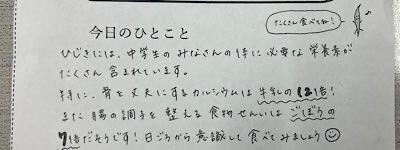 たくさん食べてね!
今日のひとこと
ひじきには、中学生のみなさんの体に必要な栄養素が
たくさん含まれています。
特に、骨を丈夫にするカルシウムは牛乳の12倍!
また腸の調子を整える食物せんいはごぼうの
7倍だそうです!日ごろから意識して食べてみましょう